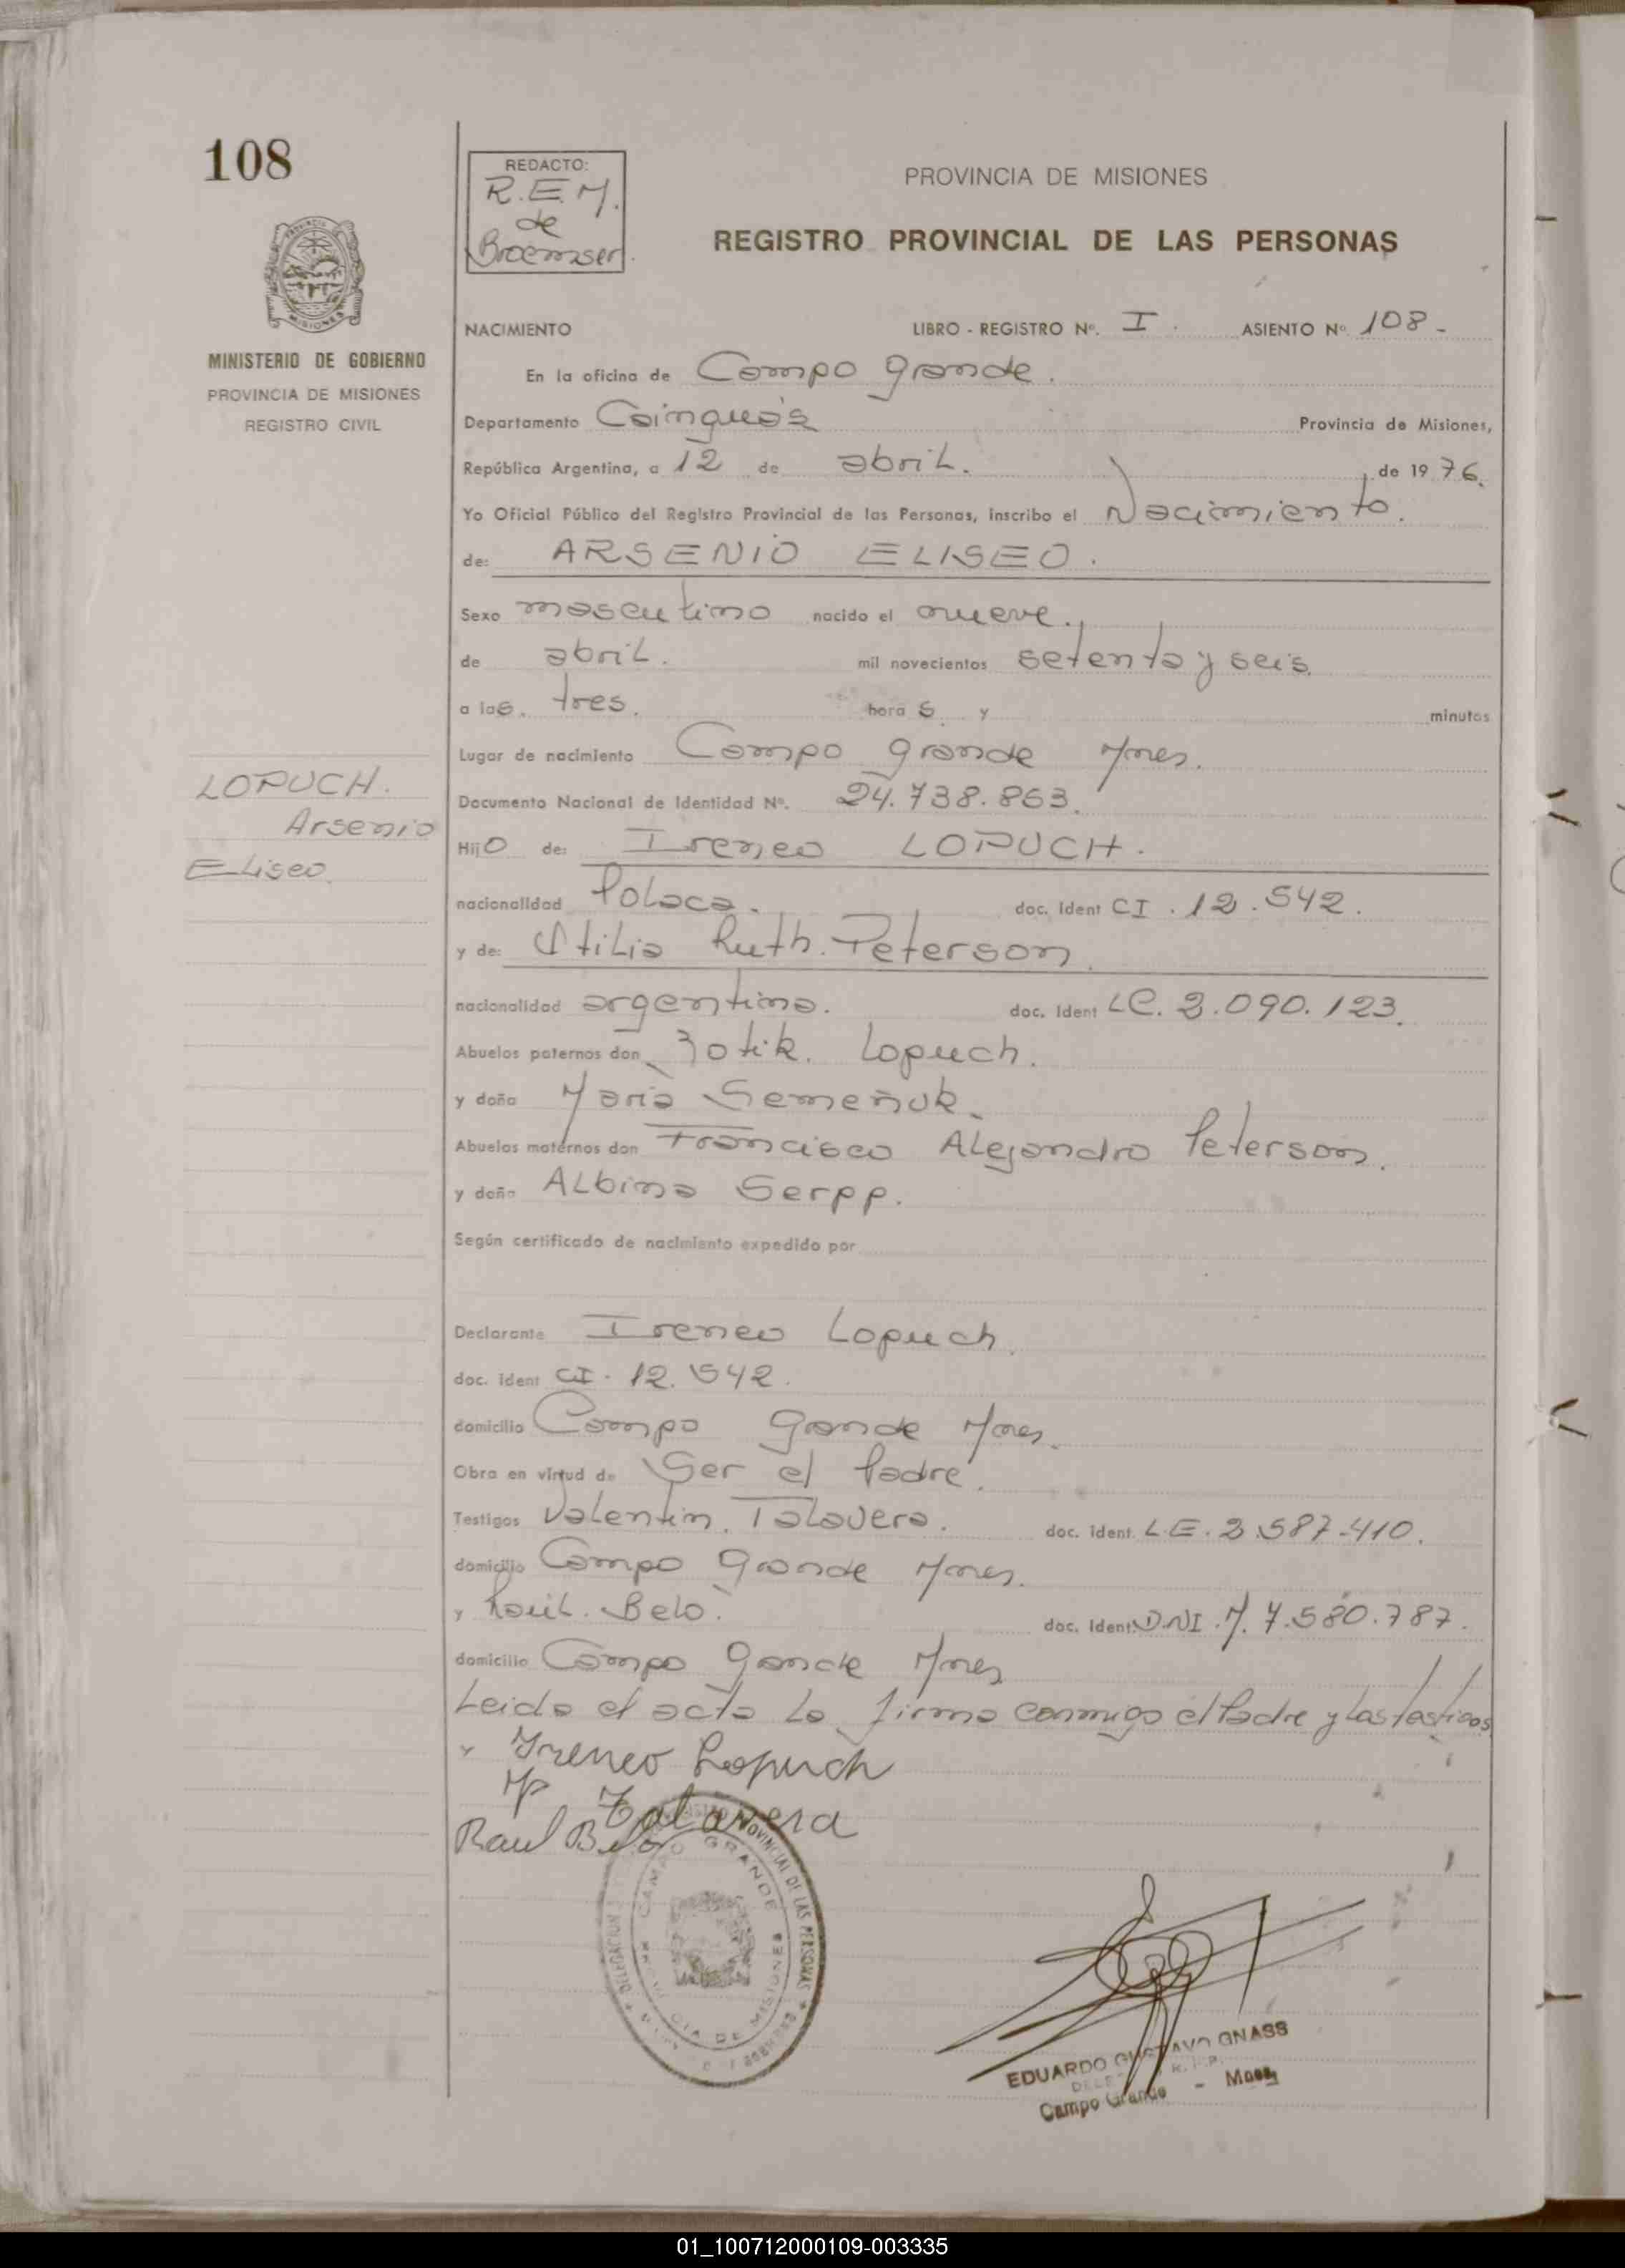 108
REDACTO:
R.E.M.
de
Broemser.
PROVINCIA DE MISIONES
REGISTRO PROVINCIAL DE LAS PERSONAS
MINISTERIO DE GOBIERNO
PROVINCIA DE MISIONES
REGISTRO CIVIL
NACIMIENTO LIBRO - REGISTRO Nº. I. ASIENTO Nº 108 -
En la oficina de Campo grande.
Departamento Cainguás Provincia de Misiones,
República Argentina, a 12 de abril. de 1976.
Yo Oficial Público del Registro Provincial de las Personas, inscribo el Nacimiento.
de: ARSENIO ELISEO.
Sexo masculino nacido el nueve.
de abril. mil novecientos setenta y seis.
a las. tres. hora s. y minutos
Lugar de nacimiento Campo grande Mnes.
Documento Nacional de Identidad Nº. 24.738.863.
LOPUCH.
Arsenio
Eliseo.
Hijo de: Ireneo LOPUCH.
nacionalidad Polaca. doc. ident CI. 12.542.
y de: Otilia Ruth. Peterson.
nacionalidad argentina. doc. ident LC. 2.090.123.
Abuelos paternos don Zotik. Lopuch.
y doña María Semeñuk.
Abuelos maternos don Francisco Alejandro Peterson.
y doña Albina Serpp.
Según certificado de nacimiento expedido por
Declarante Ireneo Lopuch.
doc. ident CI. 12.542.
domicilio Campo grande Mnes.
Obra en virtud de Ser el Padre.
Testigos Valentin. Talavera. doc. ident. L.E. 2.587.410.
domicilio Campo Grande Mnes.
y Raúl. Belo. doc. ident. D.N.I. M. 7.580.787.
domicilio Campo Grande Mnes
Leida el acta la firma conmigo el Padre y los testigos
Ireneo Lopuch
Talavera
Raul Belo
DELEGACION PROVINCIAL DE LAS PERSONAS
CAMPO GRANDE
DE MISIONES
EDUARDO GUSTAVO GNASS
Campo Grande - Mnes.
01_100712000109-003335